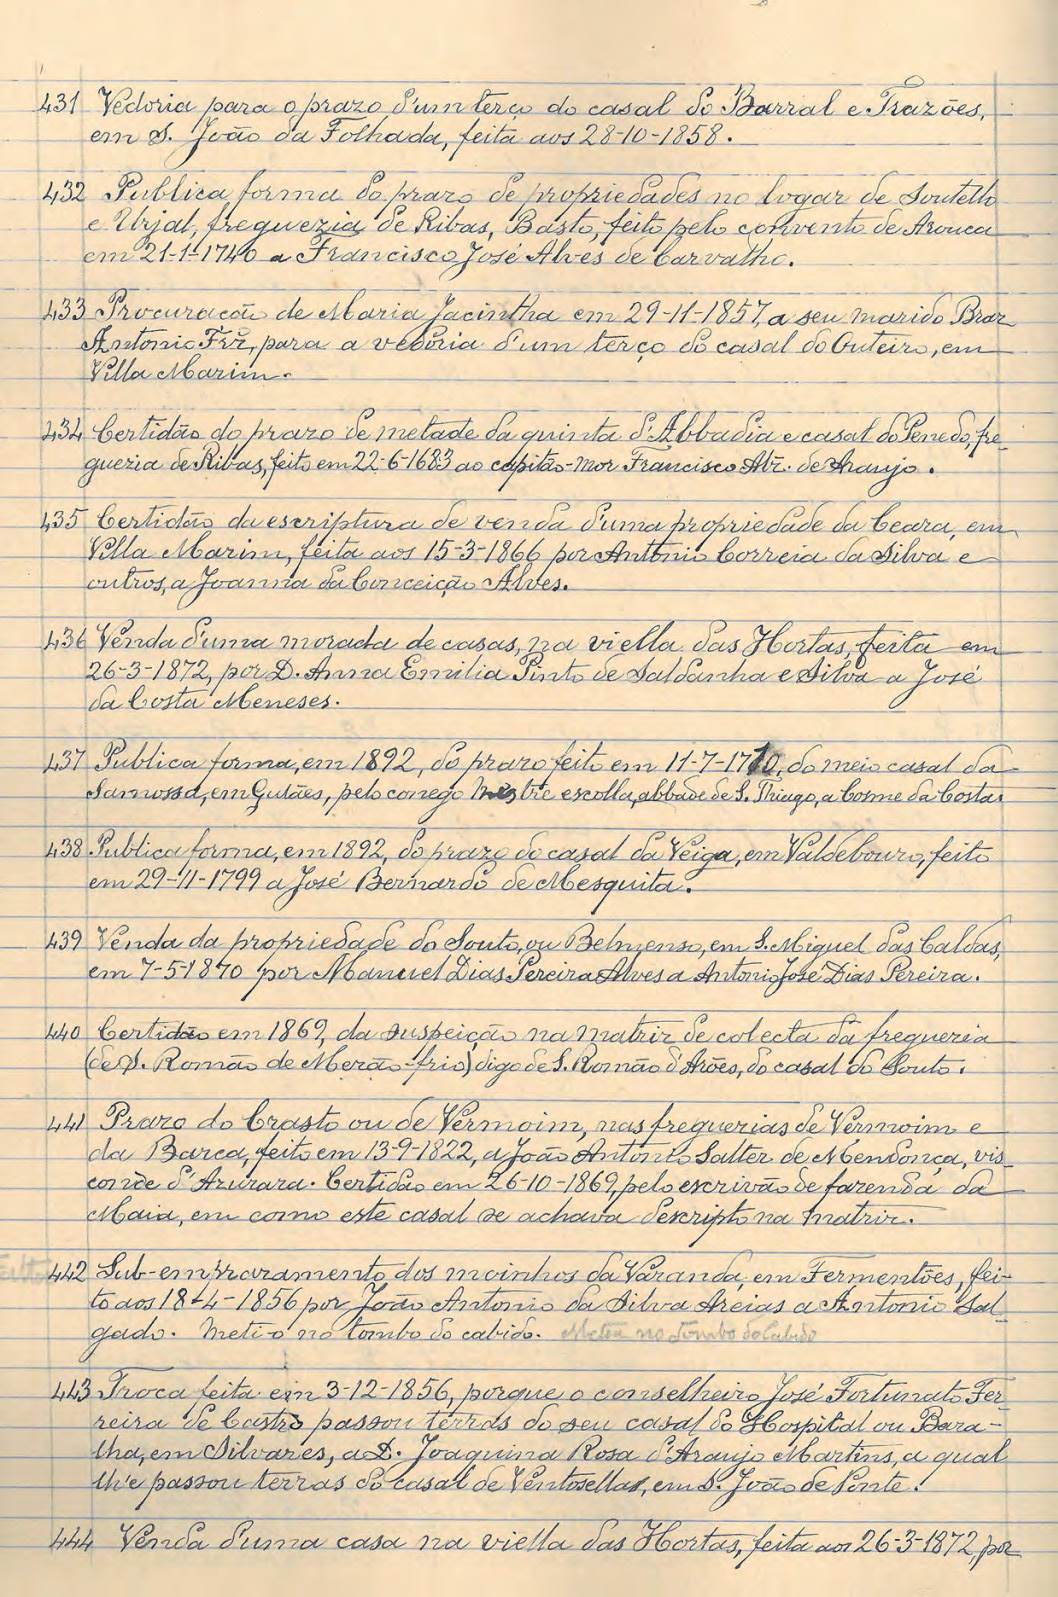 431 Vedoria para o prazo d'um terço do casal do Barral e Frazões,
em S. João da Folhada, feita aos 28-10-1858.
432 Publica forma do prazo de propriedades no logar de Soutello
e Urjal, freguezia de Ribas, Basto, feito pelo convento de Arouca
em 21-1-1740 a Francisco José Alves de Carvalho.
433 Procuração de Maria Jacintha em 29-11-1857, a seu marido Braz
Antonio Frz, para a vedoria d'um terço do casal do Outeiro, em
Villa Marim.
434 Certidão do prazo de metade da quinta d'Abbadia e casal do Penedo, fre-
guezia de Ribas, feito em 22-6-1683 ao capitão-mor Francisco Alz. de Araujo.
435 Certidão da escriptura de venda d'uma propriedade da Ceara, em
Villa Marim, feita aos 15-3-1866 por Antonio Correia da Silva e
outros, a Joanna da Conceição Alves.
436 Venda d'uma morada de casas, na viella das Hortas, feita em
26-3-1872, por D. Anna Emilia Pinto de Saldanha e Silva a José
da Costa Meneses.
437 Publica forma, em 1892, do prazo feito em 11-7-1710, do meio casal da
Samossa, em Gulães, pelo conego Mestre escolla, abbade de S. Thiago, a Cosme da Costa.
438 Publica forma, em 1892, do prazo do casal da Veiga, em Valdebouro, feito
em 29-11-1799 a José Bernardo de Mesquita.
439 Venda da propriedade do Souto, ou Belmenso, em S. Miguel das Caldas,
em 7-5-1870 por Manuel Dias Pereira Alves a Antonio José Dias Pereira.
440 Certidão em 1869, da suspeição na matriz de colecta da freguezia
(de S. Romão de Mezão-frio) digo de S. Romão d'Arões, do casal do Souto.
441 Prazo do Crasto ou de Vermoim, nas freguezias de Vermoim e
da Barca, feito em 13-9-1822, a João Antonio Salter de Mendonça, vis-
conde d'Azurara. Certidão em 26-10-1869, pelo escrivão de fazenda da
Maia, em como este casal se achava descripto na matriz.
442 Sub-emprazamento dos moinhos da Varanda, em Fermentões, fei-
to aos 18-4-1856 por João Antonio da Silva Areias a Antonio Sal-
gado. Meti-o no tombo do cabido. Meteu no Tombo do Cabido
443 Troca feita em 3-12-1856, porque o conselheiro José Fortunato Fer-
reira de Castro passou terras do seu casal do Hospital ou Bara-
lha, em Silvares, a D. Joaquina Rosa d'Araujo Martins, a qual
lhe passou terras do casal de Ventosellas, em S. João de Ponte.
444 Venda d'uma casa na viella das Hortas, feita aos 26-3-1872, por